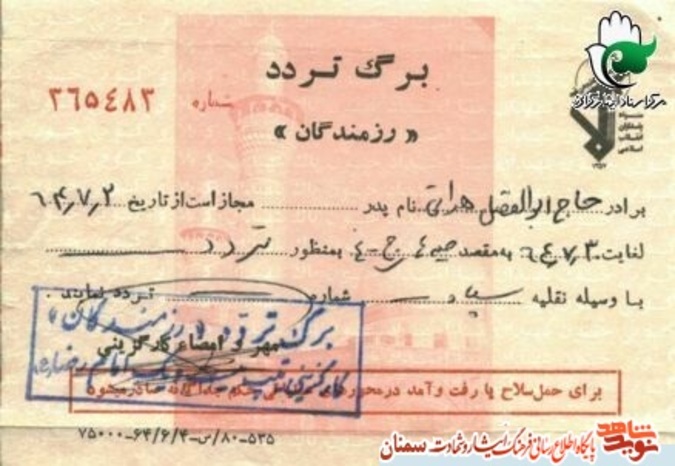 برگ تردد
شماره ۲۶۵۴۸۲
« رزمندگان »
مرکز اسناد ایثارگران
سپاه پاسداران انقلاب اسلامی
برادر حاج ابوالفضل هراتی نام پدر ........ مجاز است از تاریخ ۶۴٫۷٫۲
لغایت ۶۴٫۷٫۳ به مقصد بمنظور تردد
با وسیله نقلیه شماره تردد نمایند .
مهر و امضاء کارگزینی
برگ تردد « رزمندگان »
کارگزینی تیپ امام رضا
برای حمل سلاح یا رفت و آمد در محورهای حکم جداگانه صادر میشود
۷۵۰۰۰-۶۴/۶/۴-س/۸۰-۵۳۵
نوید شاهد
پایگاه اطلاع رسانی فرهنگ ایثار و شهادت سمنان